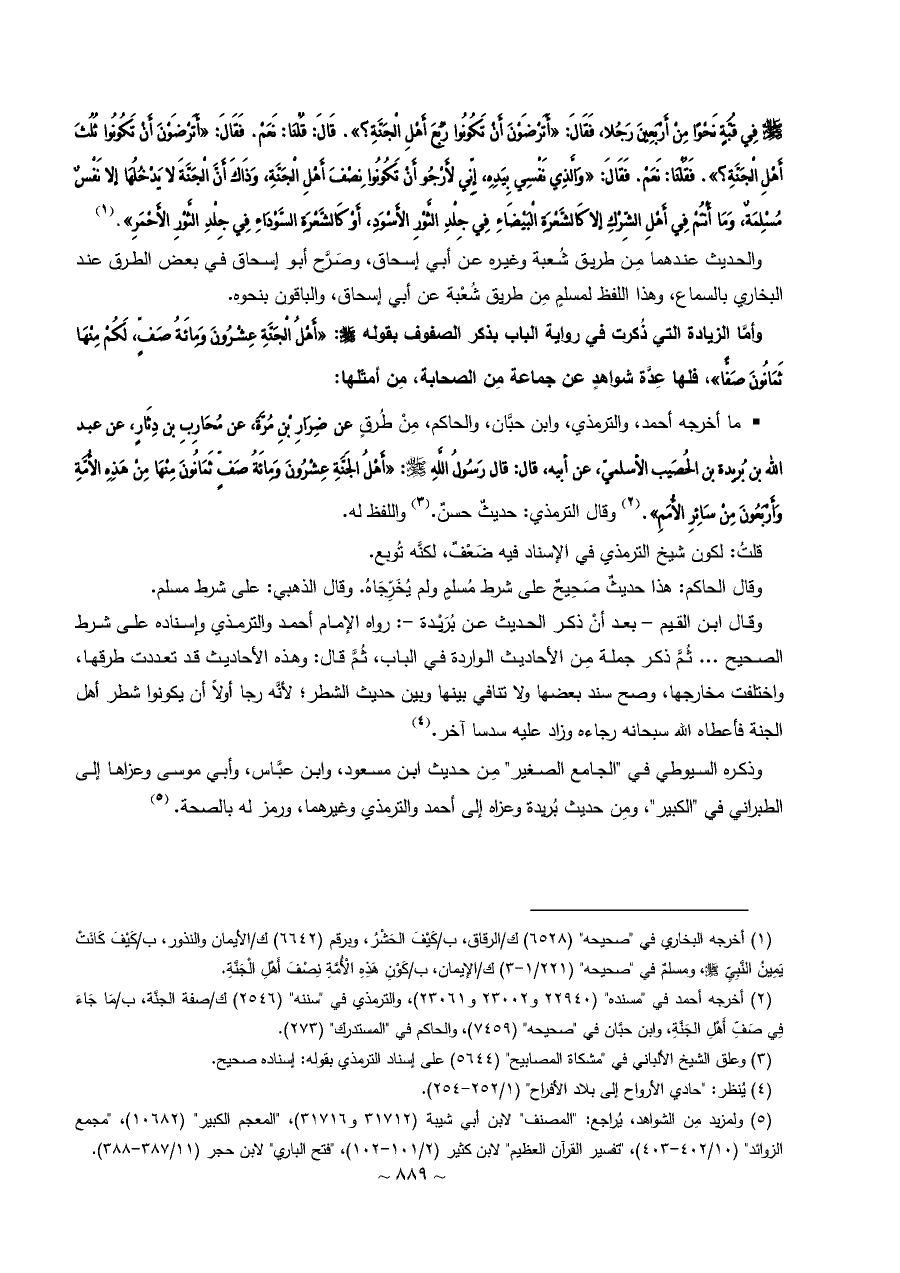 ﷺ فِي قُبَّةٍ نَحْوًا مِنْ أَرْبَعِينَ رَجُلا، فَقَالَ: «أَتَرْضَوْنَ أَنْ تَكُونُوا رُبُعَ أَهْلِ الْجَنَّةِ؟». قَالَ: قُلْنَا: نَعَمْ. فَقَالَ: «أَتَرْضَوْنَ أَنْ تَكُونُوا ثُلُثَ
أَهْلِ الْجَنَّةِ؟». فَقُلْنَا: نَعَمْ. فَقَالَ: «وَالَّذِي نَفْسِي بِيَدِهِ، إِنِّي لأَرْجُو أَنْ تَكُونُوا نِصْفَ أَهْلِ الْجَنَّةِ، وَذَاكَ أَنَّ الْجَنَّةَ لا يَدْخُلُهَا إِلا نَفْسٌ
مُسْلِمَةٌ، وَمَا أَنْتُمْ فِي أَهْلِ الشِّرْكِ إِلا كَالشَّعْرَةِ الْبَيْضَاءِ فِي جِلْدِ الثَّوْرِ الأَسْوَدِ، أَوْ كَالشَّعْرَةِ السَّوْدَاءِ فِي جِلْدِ الثَّوْرِ الأَحْمَرِ».(١)
والحديث عندهما مِن طريق شُعبة وغيره عن أبي إسحاق، وصَرَّح أبو إسحاق في بعض الطرق عند
البخاري بالسماع، وهذا اللفظ لمسلمٍ مِن طريق شُعْبة عن أبي إسحاق، والباقون بنحوه.
وأمَّا الزيادة التي ذُكرت في رواية الباب بذكر الصفوف بقوله ﷺ: «أَهْلُ الْجَنَّةِ عِشْرُونَ وَمِائَةُ صَفٍّ، لَكُمْ مِنْهَا
ثَمَانُونَ صَفًّا»، فلها عِدَّة شواهدٍ عن جماعة مِن الصحابة، مِن أمثلها:
▪ ما أخرجه أحمد، والترمذي، وابن حبَّان، والحاكم، مِنْ طُرقٍ عن ضِرَارِ بْنِ مُرَّةَ، عن مُحَارِبِ بن دِثَارٍ، عن عبد
الله بن بُريدة بن الحُصَيب الأسلميّ، عن أبيه، قال: قال رَسُولُ اللَّهِ ﷺ: «أَهْلُ الجَنَّةِ عِشْرُونَ وَمِائَةُ صَفٍّ ثَمَانُونَ مِنْهَا مِنْ هَذِهِ الأُمَّةِ
وَأَرْبَعُونَ مِنْ سَائِرِ الأُمَمِ».(٢) وقال الترمذي: حديثٌ حسنٌ.(٣) واللفظ له.
قلتُ: لكون شيخ الترمذي في الإسناد فيه ضَعْفٌ، لكنَّه تُوبع.
وقال الحاكم: هذا حديثٌ صَحِيحٌ على شرط مُسلمٍ ولم يُخَرِّجَاهُ. وقال الذهبي: على شرط مسلم.
وقال ابن القيم – بعد أنْ ذكر الحديث عن بُرَيْدة –: رواه الإمام أحمد والترمذي وإسناده على شرط
الصحيح ... ثُمَّ ذكر جملة مِن الأحاديث الواردة في الباب، ثُمَّ قال: وهذه الأحاديث قد تعددت طرقها،
واختلفت مخارجها، وصح سند بعضها ولا تنافي بينها وبين حديث الشطر؛ لأنَّه رجا أولاً أن يكونوا شطر أهل
الجنة فأعطاه الله سبحانه رجاءه وزاد عليه سدسا آخر.(٤)
وذكره السيوطي في "الجامع الصغير" مِن حديث ابن مسعود، وابن عبَّاس، وأبي موسى وعزاها إلى
الطبراني في "الكبير"، ومِن حديث بُريدة وعزاه إلى أحمد والترمذي وغيرهما، ورمز له بالصحة.(٥)
(١) أخرجه البخاري في "صحيحه" (٦٥٢٨) ك/الرقاق، ب/كَيْفَ الحَشْرُ، وبرقم (٦٦٤٢) ك/الأيمان والنذور، ب/كَيْفَ كَانَتْ
يَمِينُ النَّبِيِّ ﷺ، ومسلمٌ في "صحيحه" (٢٢١/١-٣) ك/الإيمان، ب/كَوْنِ هَذِهِ الْأُمَّةِ نِصْفَ أَهْلِ الْجَنَّةِ.
(٢) أخرجه أحمد في "مسنده" (٢٢٩٤٠ و ٢٣٠٠٢ و ٢٣٠٦١)، والترمذي في "سننه" (٢٥٤٦) ك/صفة الجنَّة، ب/مَا جَاءَ
فِي صَفِّ أَهْلِ الجَنَّةِ، وابن حبَّان في "صحيحه" (٧٤٥٩)، والحاكم في "المستدرك" (٢٧٣).
(٣) وعلق الشيخ الألباني في "مشكاة المصابيح" (٥٦٤٤) على إسناد الترمذي بقوله: إسناده صحيح.
(٤) يُنظر: "حادي الأرواح إلى بلاد الأفراح" (٢٥٢/١-٢٥٤).
(٥) ولمزيد مِن الشواهد، يُراجع: "المصنف" لابن أبي شيبة (٣١٧١٢ و ٣١٧١٦)، "المعجم الكبير" (١٠٦٨٢)، "مجمع
الزوائد" (٤٠٢/١٠-٤٠٣)، "تفسير القرآن العظيم" لابن كثير (١٠١/٢-١٠٢)، "فتح الباري" لابن حجر (٣٨٧/١١-٣٨٨).
~ ٨٨٩ ~